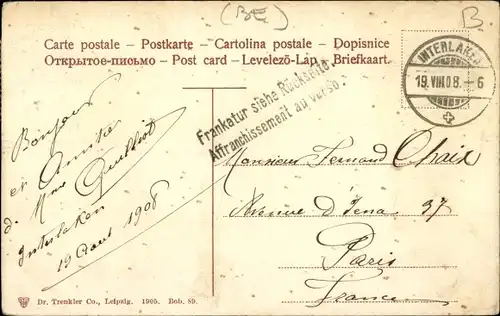 (BE)
B
Carte postale – Postkarte – Cartolina postale – Dopisnice
Открытое-письмо – Post card – Levelező-Lap – Briefkaart.
INTERLAKEN
19.VIII.08. – 6
Frankatur siehe Rückseite.
Affranchissement au verso.
Bonjour
et Amitié
d. Mme Quilliot
Interlaken
19 Aout 1908
Monsieur Fernand Chaix
Avenue d'Iena. 37
Paris
France
Dr. Trenkler Co., Leipzig. 1905. Bob. 89.